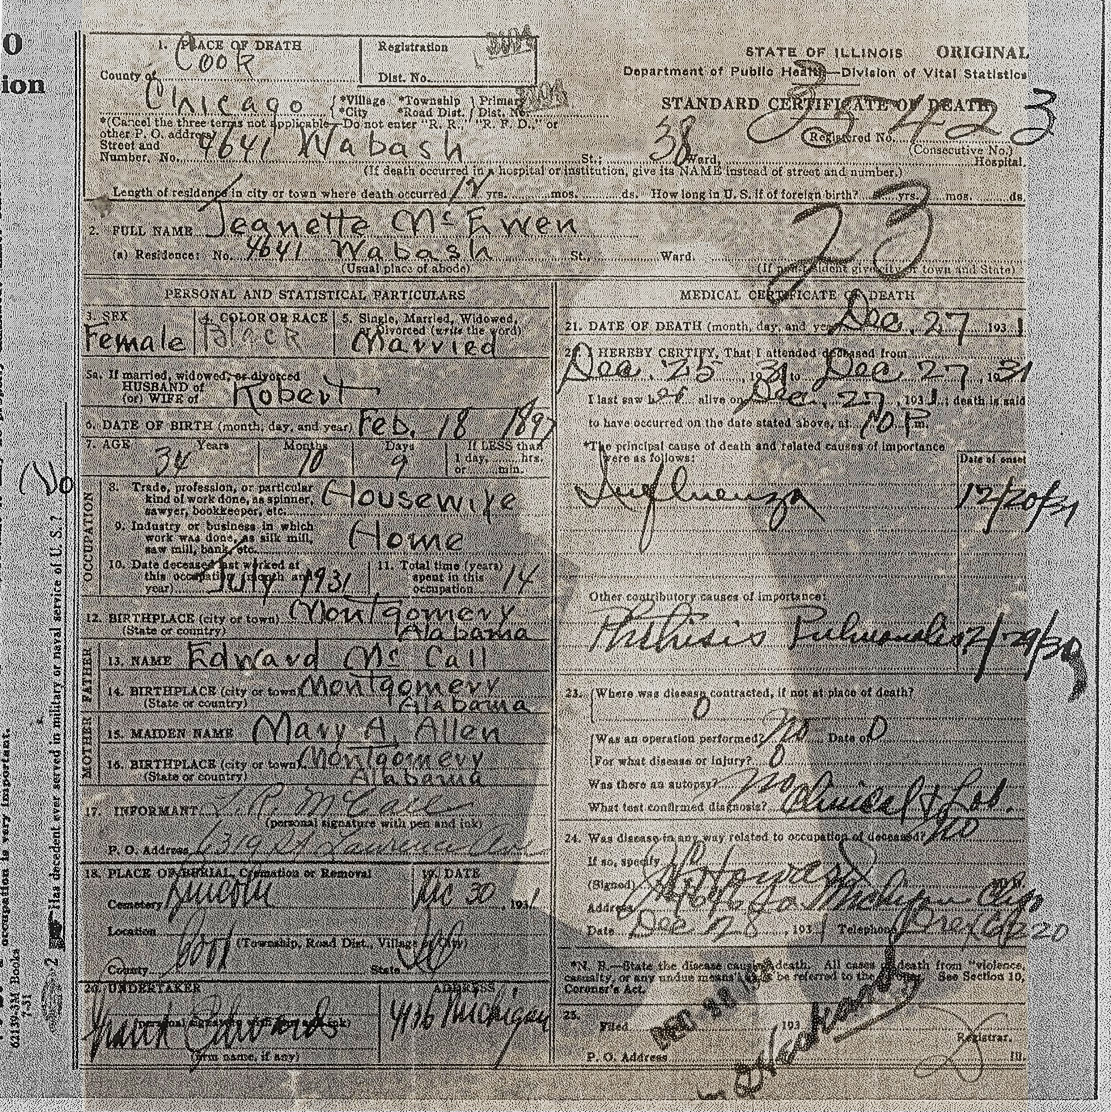 0
ion
1. PLACE OF DEATH
County of Cook
Registration
Dist. No.
3104
STATE OF ILLINOIS ORIGINAL
Department of Public Health—Division of Vital Statistics
STANDARD CERTIFICATE OF DEATH
Chicago { *Village *Township } Primary
*City *Road Dist. } Dist. No. 3104
*(Cancel the three terms not applicable—Do not enter "R. R.," "R. F. D.," or
other P. O. address)
Registered No. 35423
(Consecutive No.)
Street and
Number, No. 4641 Wabash St.; 38 Ward, Hospital.
(If death occurred in a hospital or institution, give its NAME instead of street and number.)
Length of residence in city or town where death occurred 12 yrs. mos. ds. How long in U. S. if of foreign birth? yrs. mos. ds.
23
2. FULL NAME Jeanette McEwen
(a) Residence: No. 4641 Wabash St. Ward.
(Usual place of abode) (If non-resident give city or town and State)
PERSONAL AND STATISTICAL PARTICULARS
3. SEX Female
4. COLOR OR RACE Black
5. Single, Married, Widowed,
or Divorced (write the word)
Married
5a. If married, widowed, or divorced
HUSBAND of
(or) WIFE of Robert
6. DATE OF BIRTH (month, day, and year) Feb. 18 1897
7. AGE Years 34 Months 10 Days 9 If LESS than
1 day, hrs.
or min.
OCCUPATION
8. Trade, profession, or particular
kind of work done, as spinner,
sawyer, bookkeeper, etc. Housewife
9. Industry or business in which
work was done, as silk mill,
saw mill, bank, etc. Home
10. Date deceased last worked at
this occupation (month and
year) July 1931
11. Total time (years)
spent in this
occupation 14
12. BIRTHPLACE (city or town) Montgomery
(State or country) Alabama
FATHER
13. NAME Edward Mc Call
14. BIRTHPLACE (city or town) Montgomery
(State or country) Alabama
MOTHER
15. MAIDEN NAME Mary A. Allen
16. BIRTHPLACE (city or town) Montgomery
(State or country) Alabama
17. INFORMANT L. R. McCall
(personal signature with pen and ink)
P. O. Address 6319 St. Lawrence Ave
18. PLACE OF BURIAL, Cremation or Removal
Cemetery Lincoln
19. DATE
Dec 30, 1931
Location
(Township, Road Dist., Village or City)
County Cook State Ill
20. UNDERTAKER ADDRESS
4136 Michigan
(personal signature with pen and ink)
(firm name, if any)
MEDICAL CERTIFICATE OF DEATH
21. DATE OF DEATH (month, day, and year) Dec. 27 1931
22. I HEREBY CERTIFY, That I attended deceased from
Dec. 25, 1931 to Dec 27, 1931
I last saw her alive on Dec. 27, 1931; death is said
to have occurred on the date stated above, at 10 P.m.
*The principal cause of death and related causes of importance
were as follows:
Date of onset
Influenza 12/20/31
Other contributory causes of importance:
Phthisis Pulmonalis 12/29/30
23. {Where was disease contracted, if not at place of death?
0
{Was an operation performed? No Date of 0
{For what disease or injury? 0
Was there an autopsy? No
What test confirmed diagnosis? Clinical & Lab.
24. Was disease in any way related to occupation of deceased? No
If so, specify
(Signed) Howard
Address So Michigan
Date Dec 28, 1931 Telephone
*N. B.—State the disease causing death. All cases of death from "violence,
casualty, or any undue means" must be referred to the coroner. See Section 10,
Coroner's Act.
25.
Filed DEC 193
Registrar.
P. O. Address Ill.
(No
Has decedent ever served in military or naval service of U. S.?
occupation is very important.
7-31